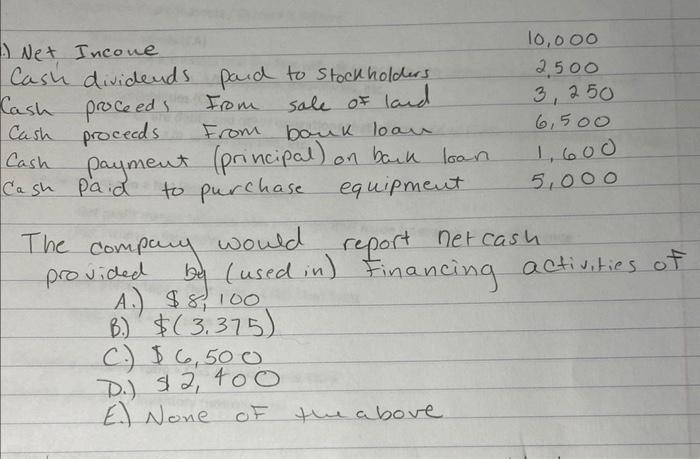 .) Net Income 10,000
Cash dividends paid to stockholders 2,500
Cash proceeds From sale of land 3,250
Cash proceeds From bank loan 6,500
Cash payment (principal) on bank loan 1,600
Cash Paid to purchase equipment 5,000
The company would report net cash
provided by (used in) Financing activities of
A.) $8,100
B.) $(3,375)
C.) $6,500
D.) $2,400
E.) None of the above